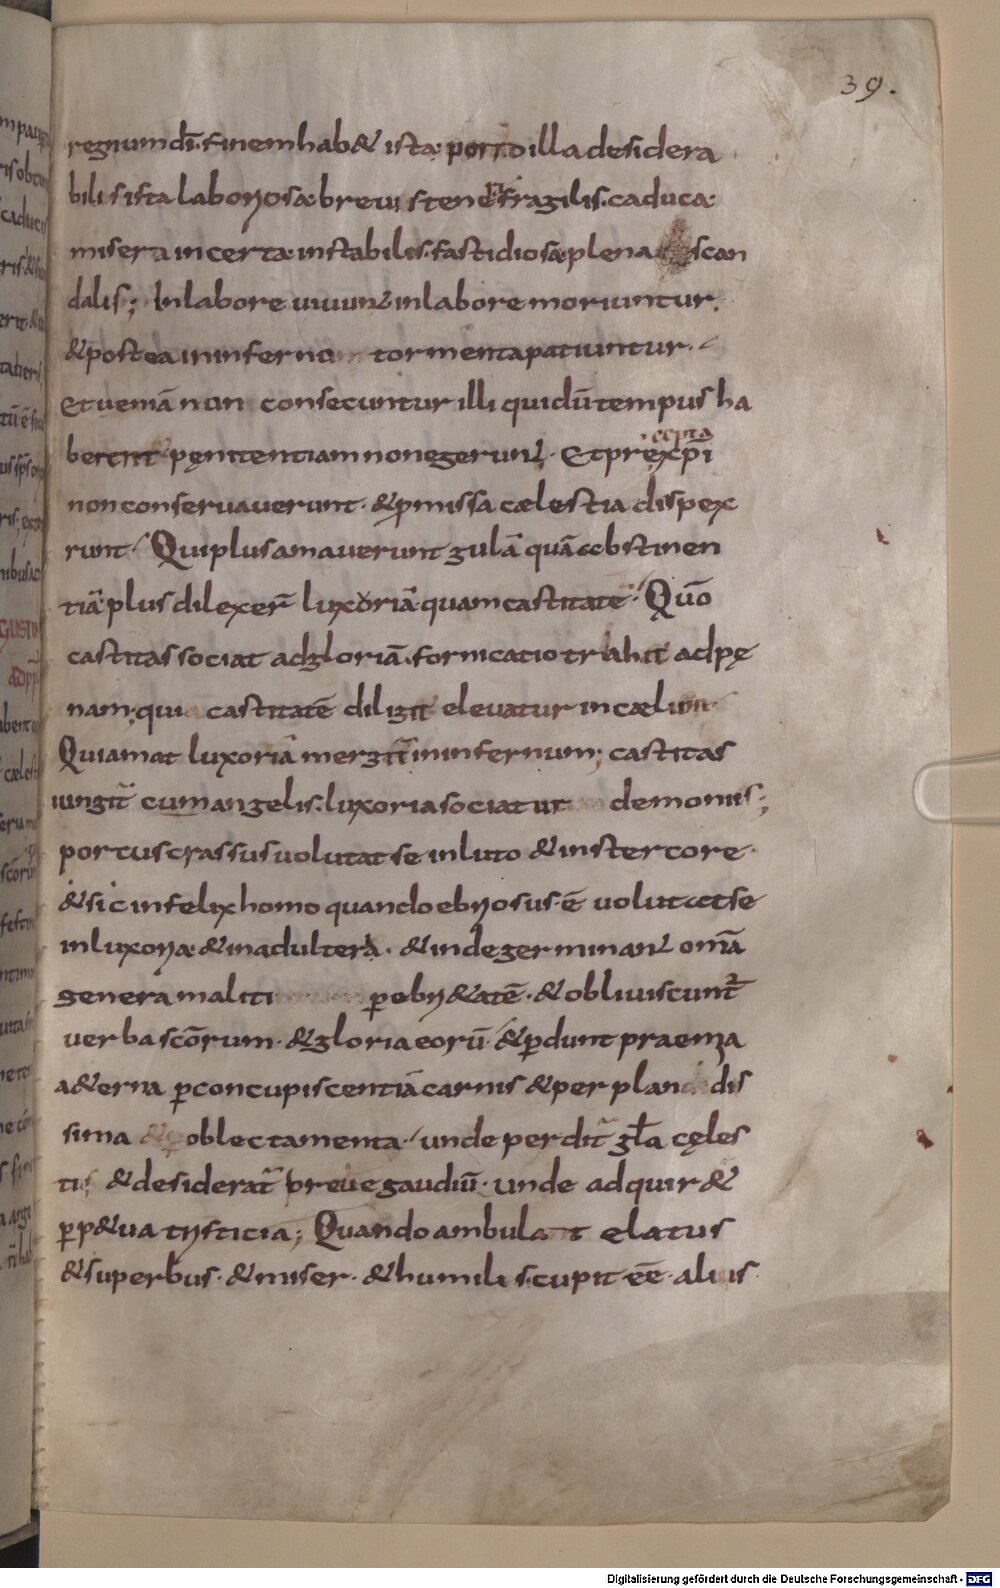 39.
regnum dī. finem hab& ista. porro illa desidera
bilis ista laboriosa breuis tenēs fragilis. caduca
misera incerta instabilis. fastidiosa plena scan
dalis; In labore uiuunt in labore moriuntur.
& postea in inferno tormenta patiuntur.
Et ueniā non consecuntur illi qui dū tempus ha
berent pęnitentiam non egerunt. Et precepta xp̄i
non conseruauerunt. & p̄missa cælestia dispex
runt. Qui plus amauerunt gulā quā abstinen
tiā plus dilexer̄ luxoriā quam castitatē. Quō
castitas sociat ad gloriā. fornicatio trahit ad pę
nam; qui castitatē diligit eleuatur in cælum
Qui amat luxoriā mergit̄ in infernum; castitas
iungit̄ cum angelis. luxoria sociatur demoniis;
porcus crassus uolutat se in luto & in stercore.
& sic infelix homo quando ebriosus. ē uolutat se
in luxoria & in adultera. & inde germinant omā
genera maliti p̱ ebri&atē. & obliuiscunt̄
uerba scōrum. & gloria eorū. & p̱dunt praemia
a&erna p̱ concupiscentiā carnis & per plan dis
sima oblectamenta. unde perdit̄ gl̄a cęles
tis & desiderat̄ breue gaudiū. unde adquir&
p̱p&ua tristicia; Quando ambulat elatus
& superbus. & miser. & humilis. cupit eē. alius
Digitalisierung gefördert durch die Deutsche Forschungsgemeinschaft - DFG